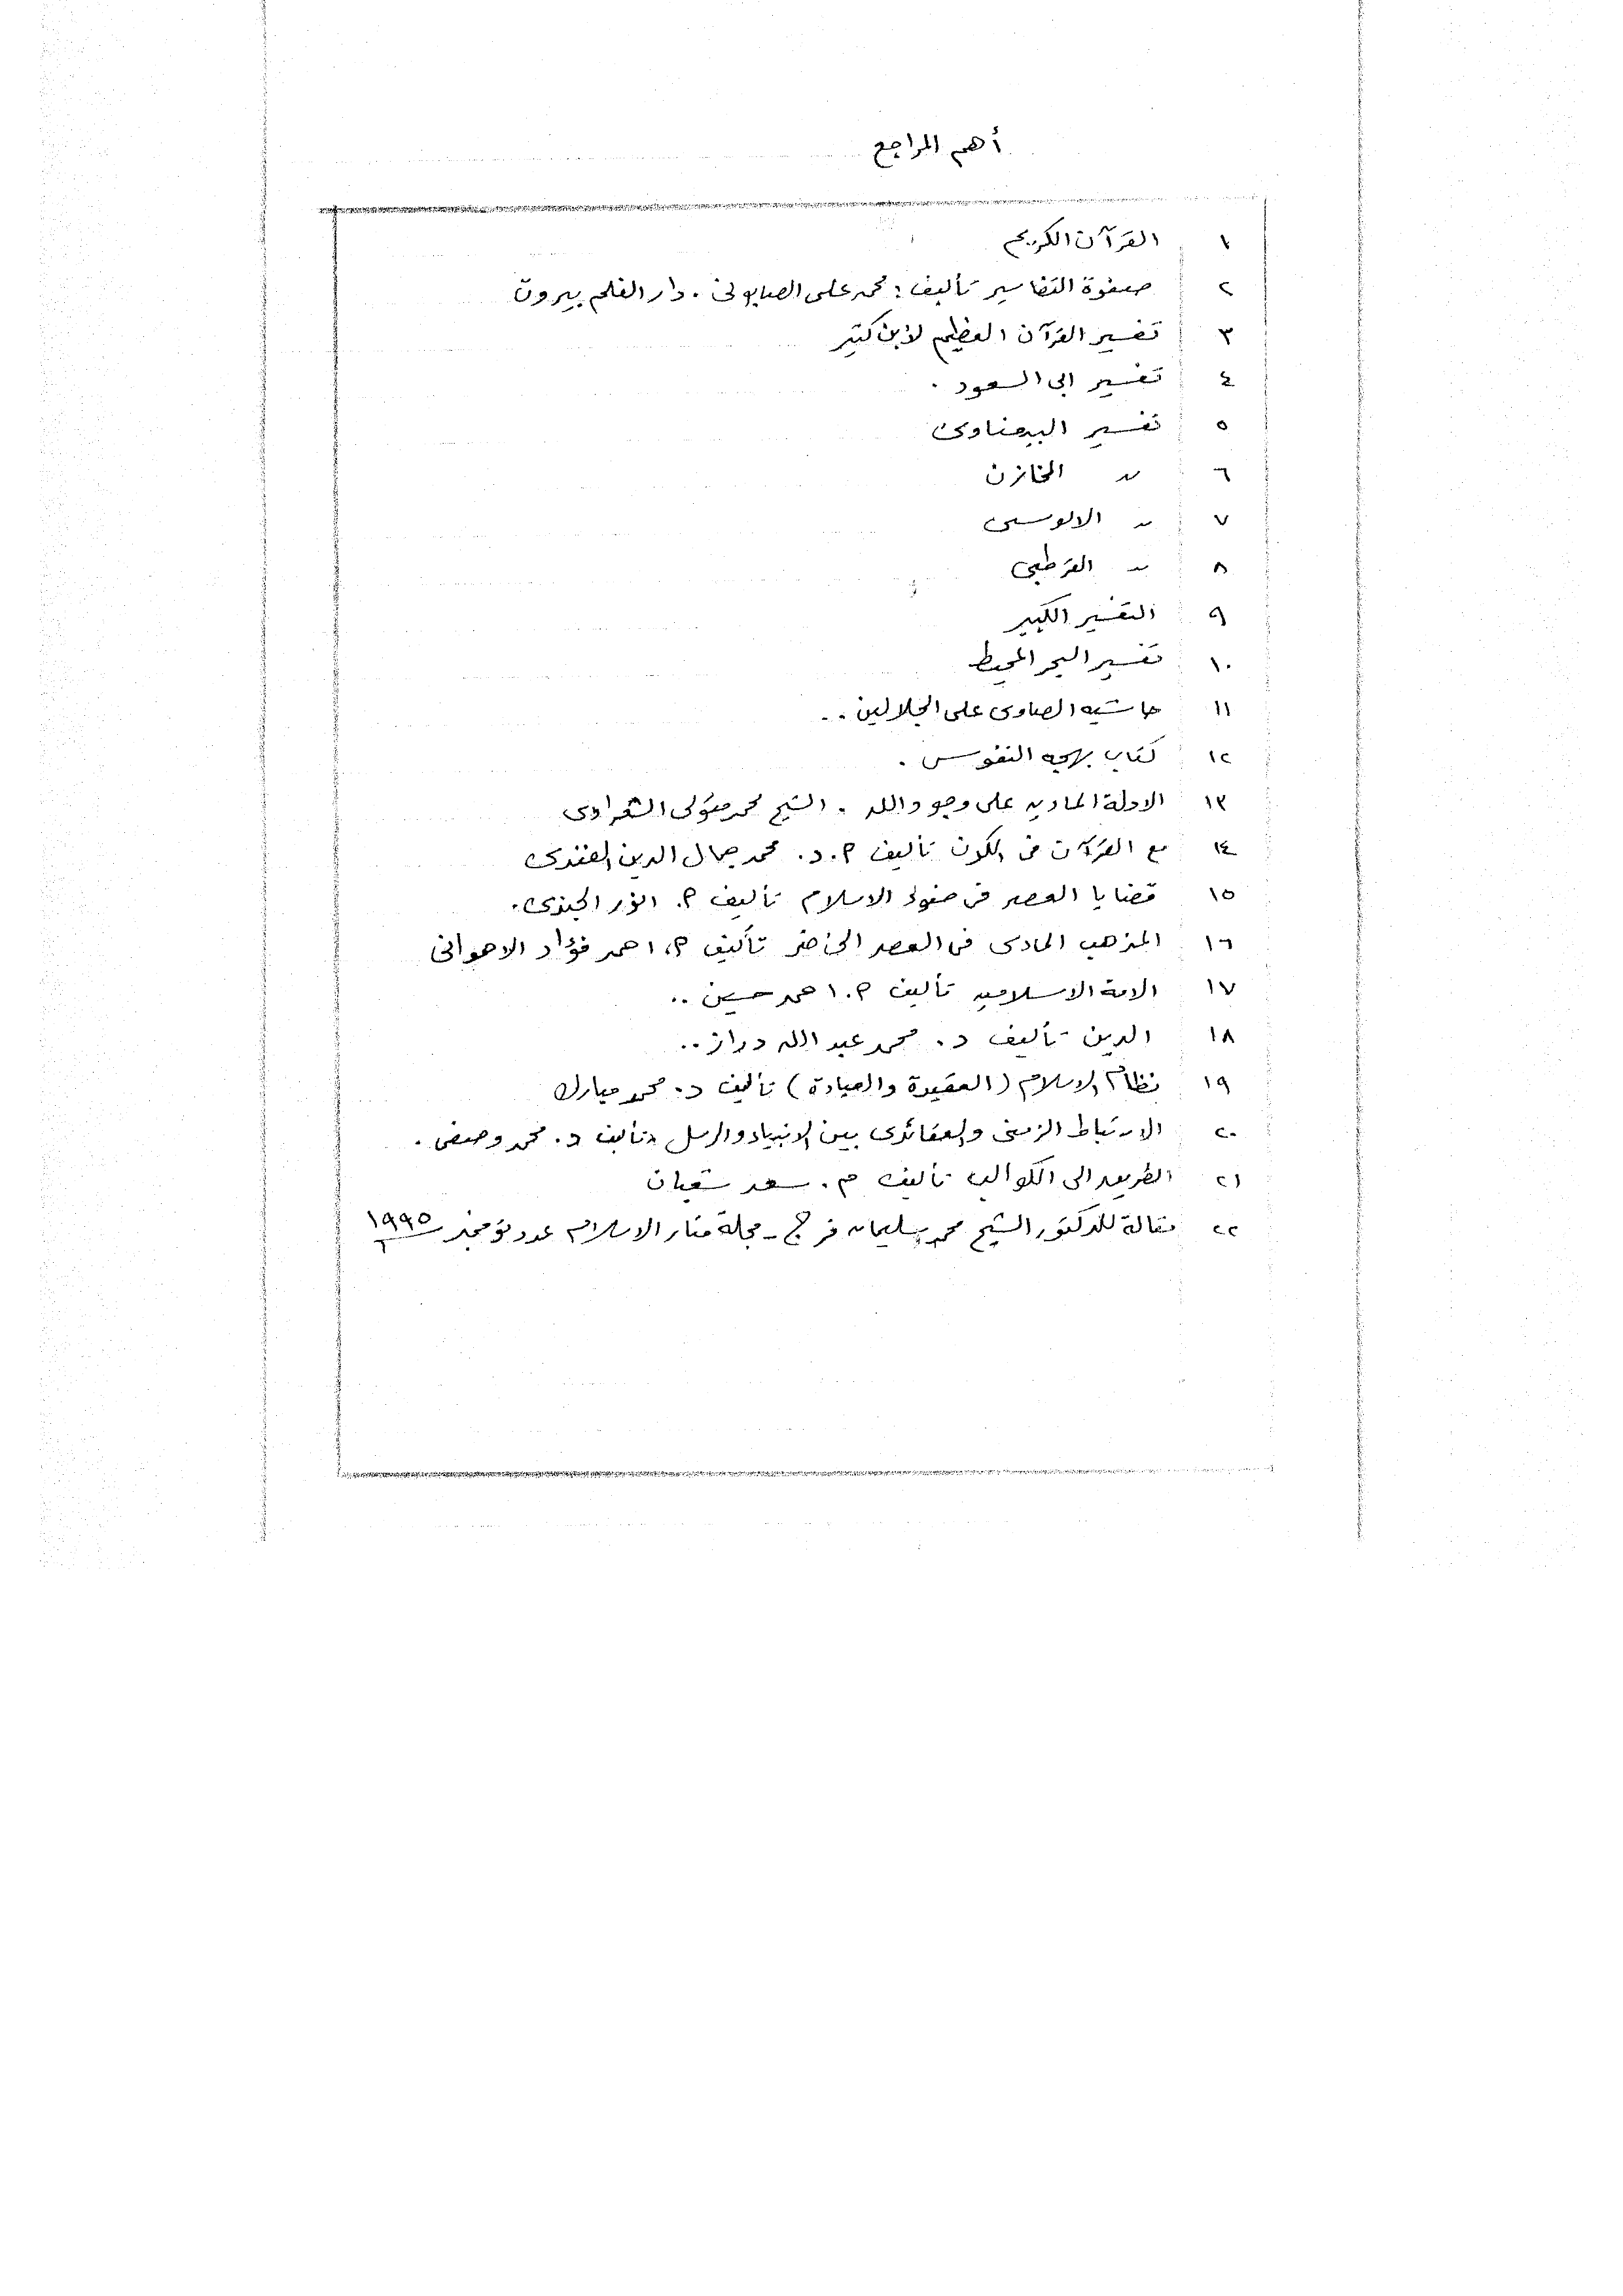 أهم المراجع
١ القرآن الكريم
٢ صفوة التفاسير تأليف : محمد على الصابونى . دار القلم بيروت
٣ تفسير القرآن العظيم لابن كثير
٤ تفسير ابى السعود .
٥ تفسير البيضاوى
٦ 〃 الخازن
٧ 〃 الالوسى
٨ 〃 القرطبى
٩ التفسير الكبير
١٠ تفسير البحر المحيط
١١ حاشيه الصاوى على الجلالين ..
١٢ كتاب بهجه النفوس .
١٣ الادلة الماديه على وجود الله . الشيخ محمد متولى الشعراوى
١٤ مع القرآن فى الكون تأليف أ.د. محمد جمال الدين الفندى
١٥ قضايا العصر فى ضوء الاسلام تأليف أ. انور الجندى .
١٦ المذهب المادى فى العصر الحاضر تأليف أ. احمد فؤاد الاهوانى
١٧ الامة الاسلاميه تأليف أ. احمد حسين ..
١٨ الدين تأليف د. محمد عبد الله دراز ..
١٩ نظام الاسلام (العقيدة والعبادة) تأليف د. محمد مبارك
٢٠ الارتباط الزمنى والعقائدى بين الانبياء والرسل تأليف د. محمد وصفى .
٢١ الطريق الى الكواكب تأليف م. سعد شعبان
٢٢ مقالة للدكتور الشيخ محمد سليمان فرج - مجلة منار الاسلام عدد نوفمبر ١٩٩٥